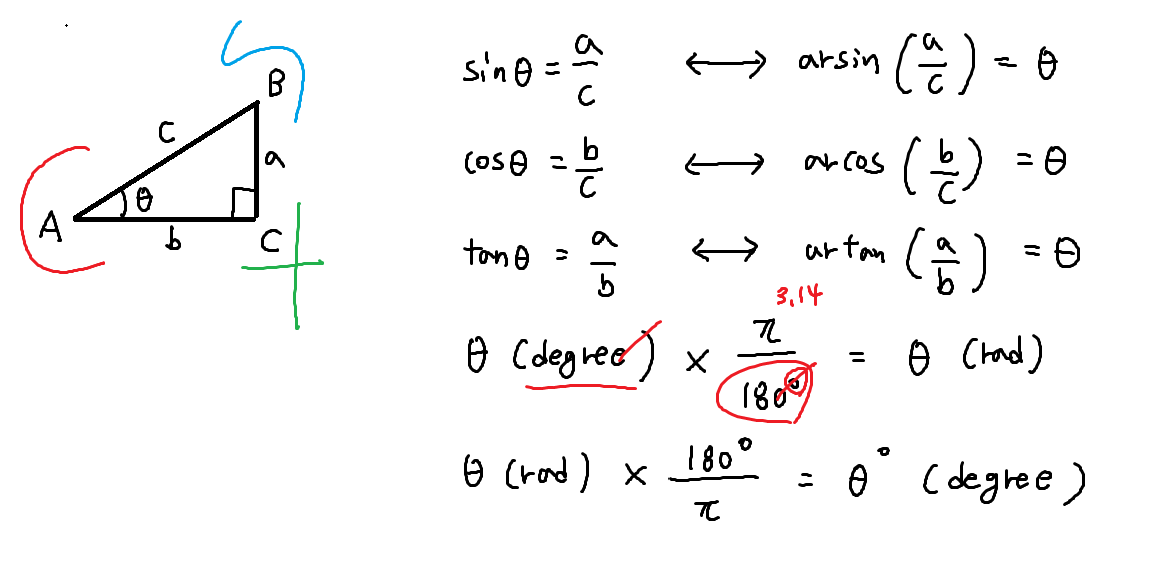 B
c
a
θ
A
b
C
sinθ = a/c ⟷ arsin (a/c) = θ
cosθ = b/c ⟷ arcos (b/c) = θ
tanθ = a/b ⟷ artan (a/b) = θ
3.14
θ (degree) × π/180° = θ (rad)
θ (rad) × 180°/π = θ° (degree)